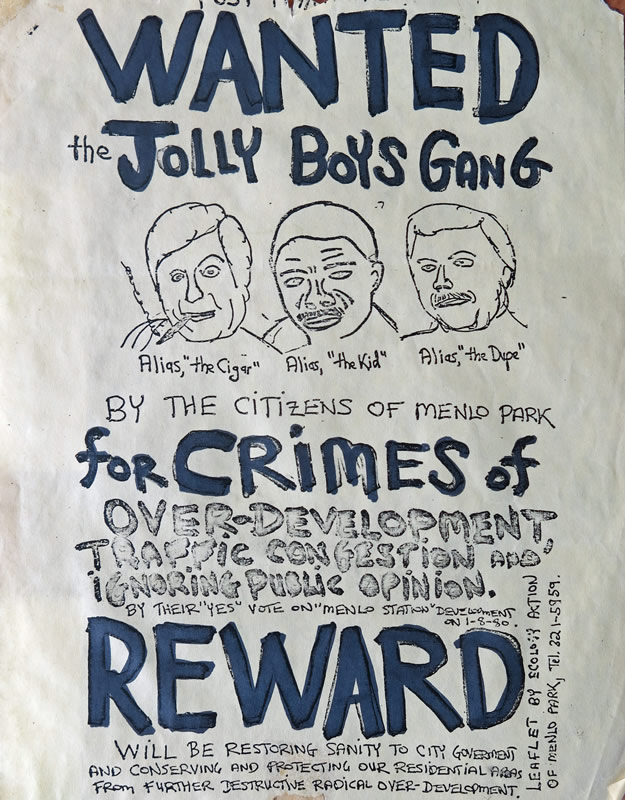 WANTED
the JOLLY BOYS GANG
Alias, "the Cigar" Alias, "the Kid" Alias, "the Dupe"
BY THE CITIZENS OF MENLO PARK
for CRIMES of
OVER-DEVELOPMENT
TRAFFIC CONGESTION AND
IGNORING PUBLIC OPINION.
BY THEIR "YES" VOTE ON "MENLO STATION" DEVELOPMENT
ON 1-8-80.
REWARD
WILL BE RESTORING SANITY TO CITY GOVERMENT
AND CONSERVING AND PROTECTING OUR RESIDENTIAL AREAS
FROM FURTHER DESTRUCTIVE RADICAL OVER-DEVELOPMENT.
LEAFLET BY ECOLOGY ACTION
OF MENLO PARK, TEL. 321-5959.